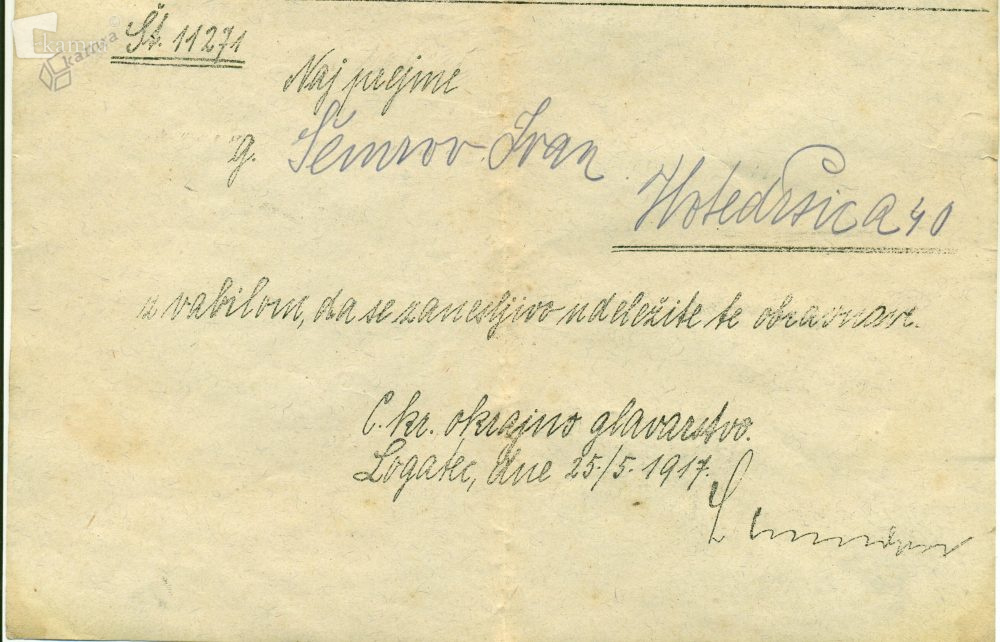 kamra
Št. 11271
Naj prejme
g. Šemrov Ivan
Hotedršica 40
z vabilom, da se zanesljivo udeležite te obravnave.
C. kr. okrajno glavarstvo.
Logatec, dne 25./5. 1917.